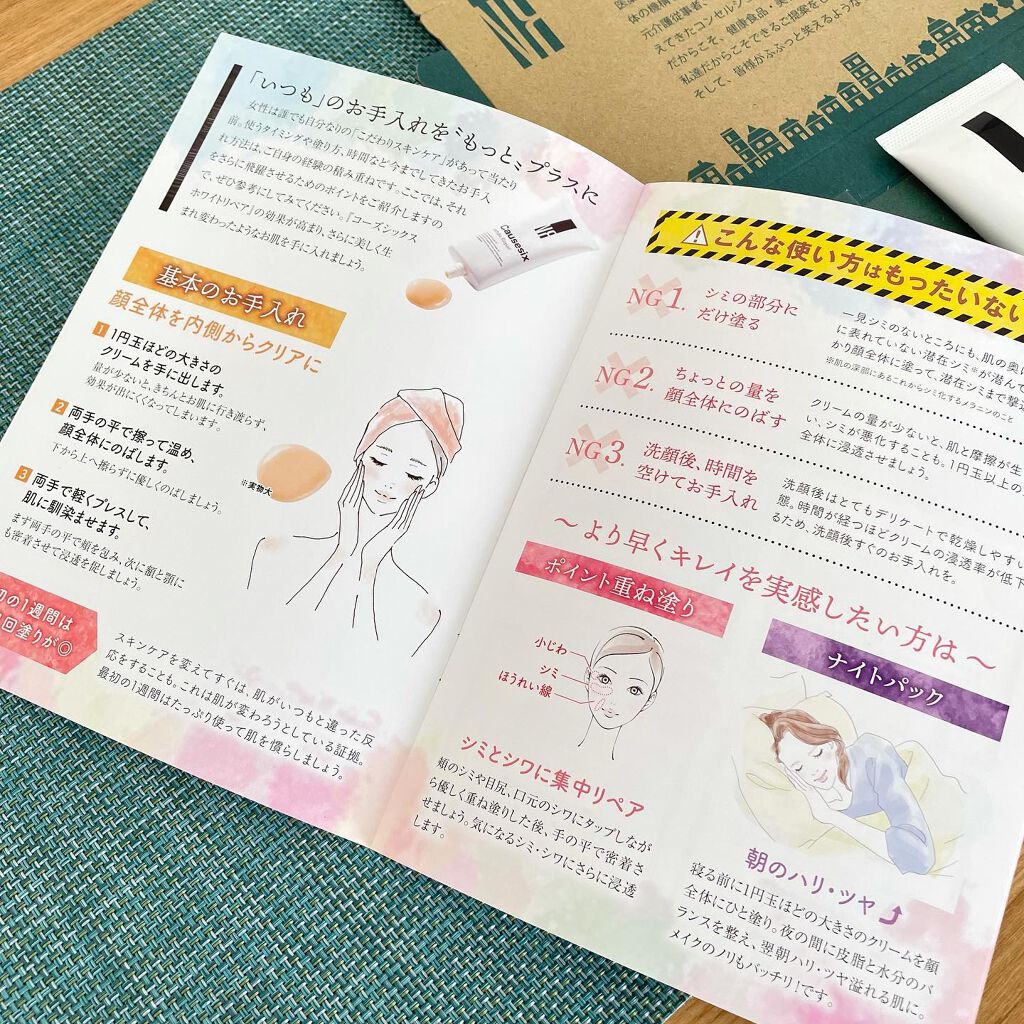 「いつも」のお手入れを〝もっと〟プラスに
女性は誰でも自分なりの「こだわりスキンケア」があって当たり
前。使うタイミングや塗り方、時間など今までしてきたお手入
れ方法は、ご自身の経験の積み重ねです。ここでは、それ
をさらに飛躍させるためのポイントをご紹介しますの
で、ぜひ参考にしてみてください。『コーズシックス
ホワイトリペア』の効果が高まり、さらに美しく生
まれ変わったようなお肌を手に入れましょう。
Causesix
基本のお手入れ
顔全体を内側からクリアに
1 1円玉ほどの大きさの
クリームを手に出します。
量が少ないと、きちんとお肌に行き渡らず、
効果が出にくくなってしまいます。
2 両手の平で擦って温め、
顔全体にのばします。
下から上へ擦らずに優しくのばしましょう。
3 両手で軽くプレスして、
肌に馴染ませます。
まず両手の平で頬を包み、次に額と顎に
も密着させて浸透を促しましょう。
※実物大
初の1週間は
回塗りが◎
スキンケアを変えてすぐは、肌がいつもと違った反
応をすることも。これは肌が変わろうとしている証拠。
最初の1週間はたっぷり使って肌を慣らしましょう。
こんな使い方はもったいない
NG1. シミの部分に
だけ塗る
一見シミのないところにも、肌の奥に
に表れていない潜在シミ※が潜んで
かり顔全体に塗って、潜在シミまで撃
※肌の深部にあるこれからシミ化するメラニンのこと
NG2. ちょっとの量を
顔全体にのばす
クリームの量が少ないと、肌と摩擦が生
い、シミが悪化することも。1円玉以上の
全体に浸透させましょう。
NG3. 洗顔後、時間を
空けてお手入れ
洗顔後はとてもデリケートで乾燥しやすい
態。時間が経つほどクリームの浸透率が低下
るため、洗顔後すぐのお手入れを。
～より早くキレイを実感したい方は～
ポイント重ね塗り
小じわ
シミ
ほうれい線
シミとシワに集中リペア
頬のシミや目尻、口元のシワにタップしなが
ら優しく重ね塗りした後、手の平で密着さ
せましょう。気になるシミ・シワにさらに浸透
します。
ナイトパック
朝のハリ・ツヤ
寝る前に1円玉ほどの大きさのクリームを顔
全体にひと塗り。夜の間に皮脂と水分のバ
ランスを整え、翌朝ハリ・ツヤ溢れる肌に。
メイクのノリもバッチリ！です。
体の機構
元介護従事者、
えてきたコンセルジュ
だからこそ、健康食品・美
私達だからこそできるご提案を
そして、皆様がふふっと笑えるような